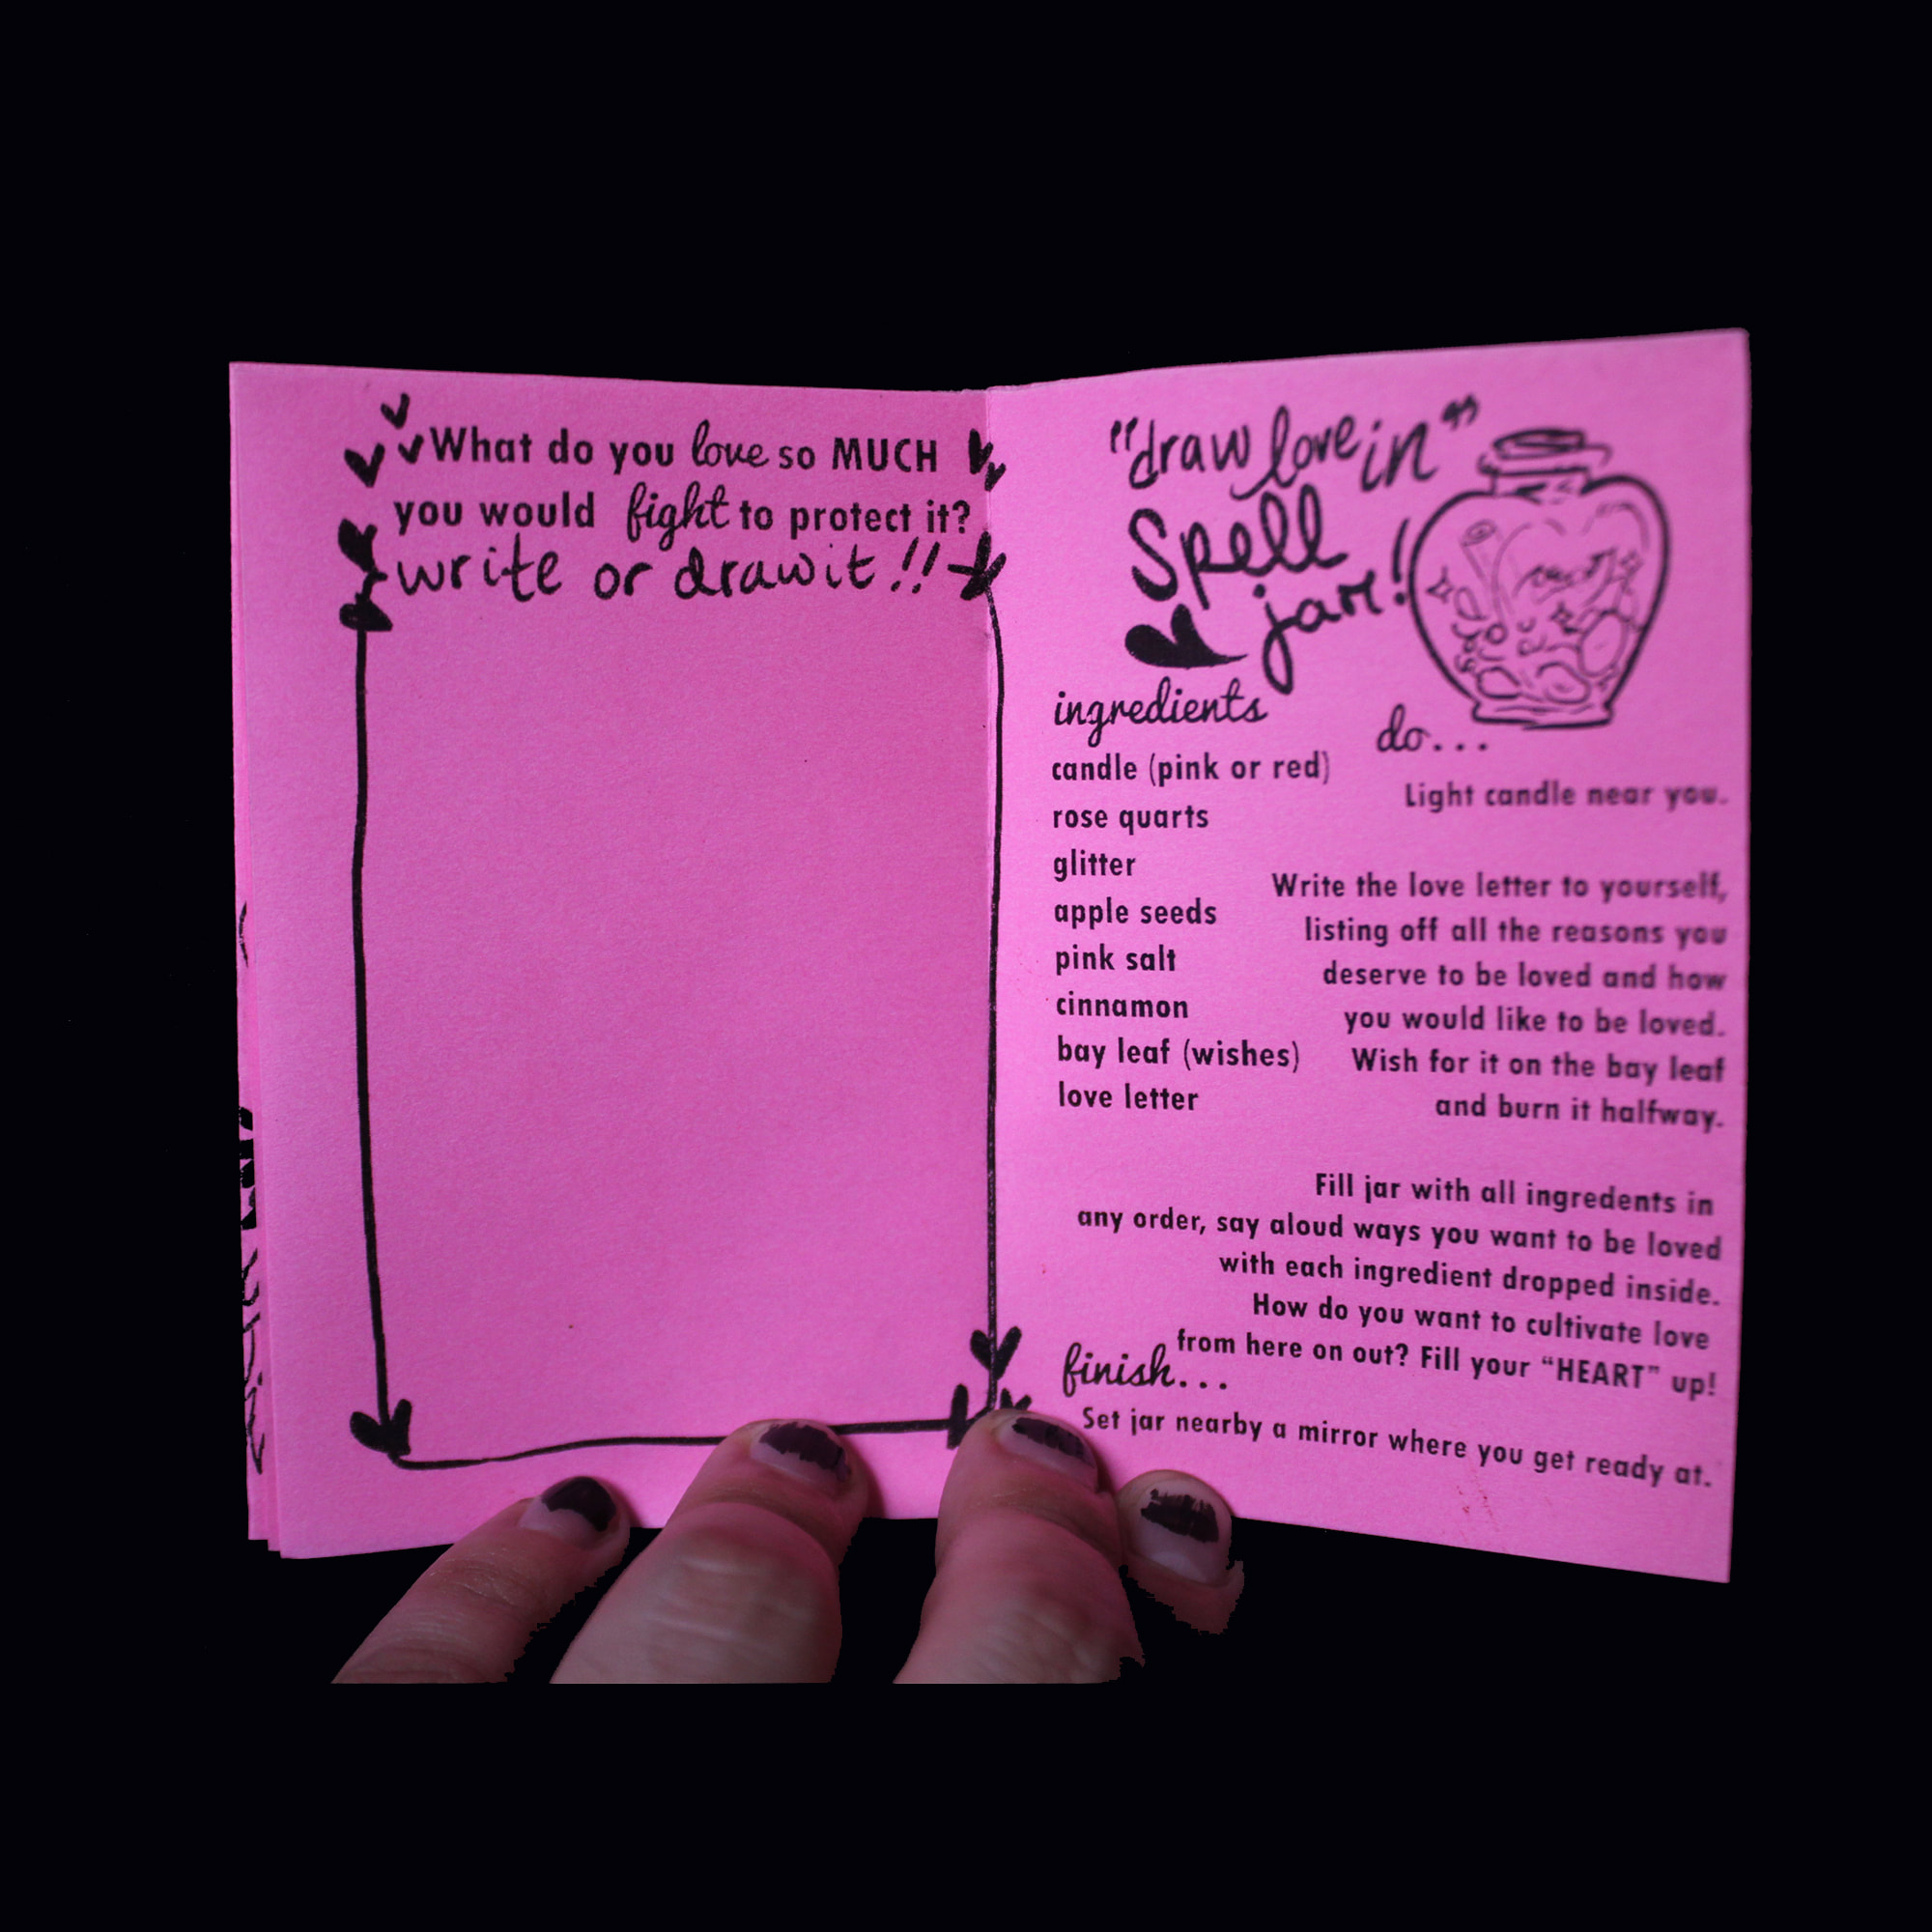 What do you love so MUCH
you would fight to protect it?
write or draw it!!
"draw love in"
Spell
jar!
ingredients
candle (pink or red)
rose quarts
glitter
apple seeds
pink salt
cinnamon
bay leaf (wishes)
love letter
do...
Light candle near you.
Write the love letter to yourself,
listing off all the reasons you
deserve to be loved and how
you would like to be loved.
Wish for it on the bay leaf
and burn it halfway.
Fill jar with all ingredents in
any order, say aloud ways you want to be loved
with each ingredient dropped inside.
How do you want to cultivate love
from here on out? Fill your “HEART” up!
finish...
Set jar nearby a mirror where you get ready at.